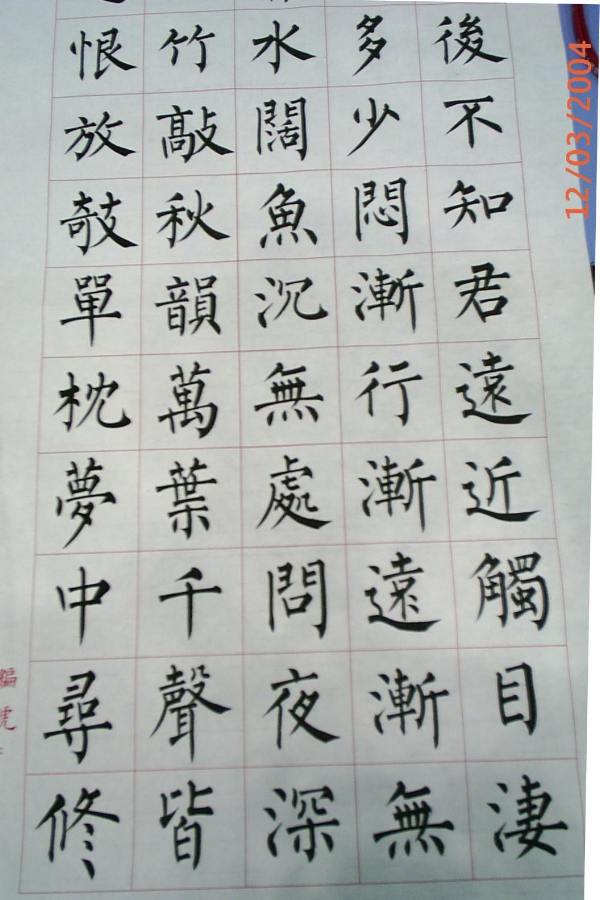 後不知君遠近觸目淒
多少悶漸行漸遠漸無
水闊魚沉無處問夜深
竹敲秋韻萬葉千聲皆
恨放攲單枕夢中尋修
編號
12/03/2004